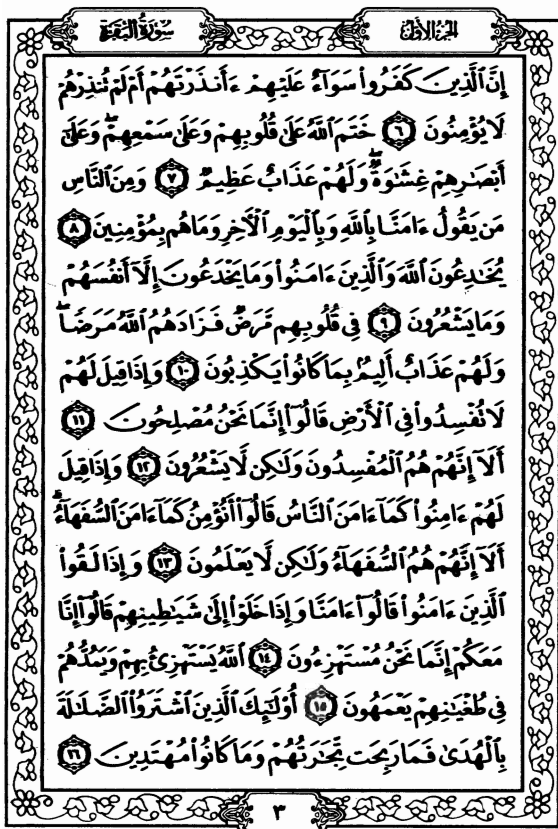 سُورَةُ البَقَرَةِ الجُزءُ الأَوَّلُ
إِنَّ ٱلَّذِينَ كَفَرُواْ سَوَآءٌ عَلَيْهِمْ ءَأَنذَرْتَهُمْ أَمْ لَمْ تُنذِرْهُمْ
لَا يُؤْمِنُونَ ٦ خَتَمَ ٱللَّهُ عَلَىٰ قُلُوبِهِمْ وَعَلَىٰ سَمْعِهِمْۖ وَعَلَىٰٓ
أَبْصَٰرِهِمْ غِشَٰوَةٌۖ وَلَهُمْ عَذَابٌ عَظِيمٌ ٧ وَمِنَ ٱلنَّاسِ
مَن يَقُولُ ءَامَنَّا بِٱللَّهِ وَبِٱلْيَوْمِ ٱلْأَخِرِ وَمَا هُم بِمُؤْمِنِينَ ٨
يُخَٰدِعُونَ ٱللَّهَ وَٱلَّذِينَ ءَامَنُواْ وَمَا يَخْدَعُونَ إِلَّآ أَنفُسَهُمْ
وَمَا يَشْعُرُونَ ٩ فِى قُلُوبِهِم مَّرَضٌ فَزَادَهُمُ ٱللَّهُ مَرَضًاۖ
وَلَهُمْ عَذَابٌ أَلِيمٌۢ بِمَا كَانُواْ يَكْذِبُونَ ١٠ وَإِذَا قِيلَ لَهُمْ
لَا تُفْسِدُواْ فِى ٱلْأَرْضِ قَالُوٓاْ إِنَّمَا نَحْنُ مُصْلِحُونَ ١١
أَلَآ إِنَّهُمْ هُمُ ٱلْمُفْسِدُونَ وَلَٰكِن لَّا يَشْعُرُونَ ١٢ وَإِذَا قِيلَ
لَهُمْ ءَامِنُواْ كَمَآ ءَامَنَ ٱلنَّاسُ قَالُوٓاْ أَنُؤْمِنُ كَمَآ ءَامَنَ ٱلسُّفَهَآءُۗ
أَلَآ إِنَّهُمْ هُمُ ٱلسُّفَهَآءُ وَلَٰكِن لَّا يَعْلَمُونَ ١٣ وَإِذَا لَقُواْ
ٱلَّذِينَ ءَامَنُواْ قَالُوٓاْ ءَامَنَّا وَإِذَا خَلَوْاْ إِلَىٰ شَيَٰطِينِهِمْ قَالُوٓاْ إِنَّا
مَعَكُمْ إِنَّمَا نَحْنُ مُسْتَهْزِءُونَ ١٤ ٱللَّهُ يَسْتَهْزِئُ بِهِمْ وَيَمُدُّهُمْ
فِى طُغْيَٰنِهِمْ يَعْمَهُونَ ١٥ أُوْلَٰٓئِكَ ٱلَّذِينَ ٱشْتَرَوُاْ ٱلضَّلَٰلَةَ
بِٱلْهُدَىٰ فَمَا رَبِحَت تِّجَٰرَتُهُمْ وَمَا كَانُواْ مُهْتَدِينَ ١٦
٣